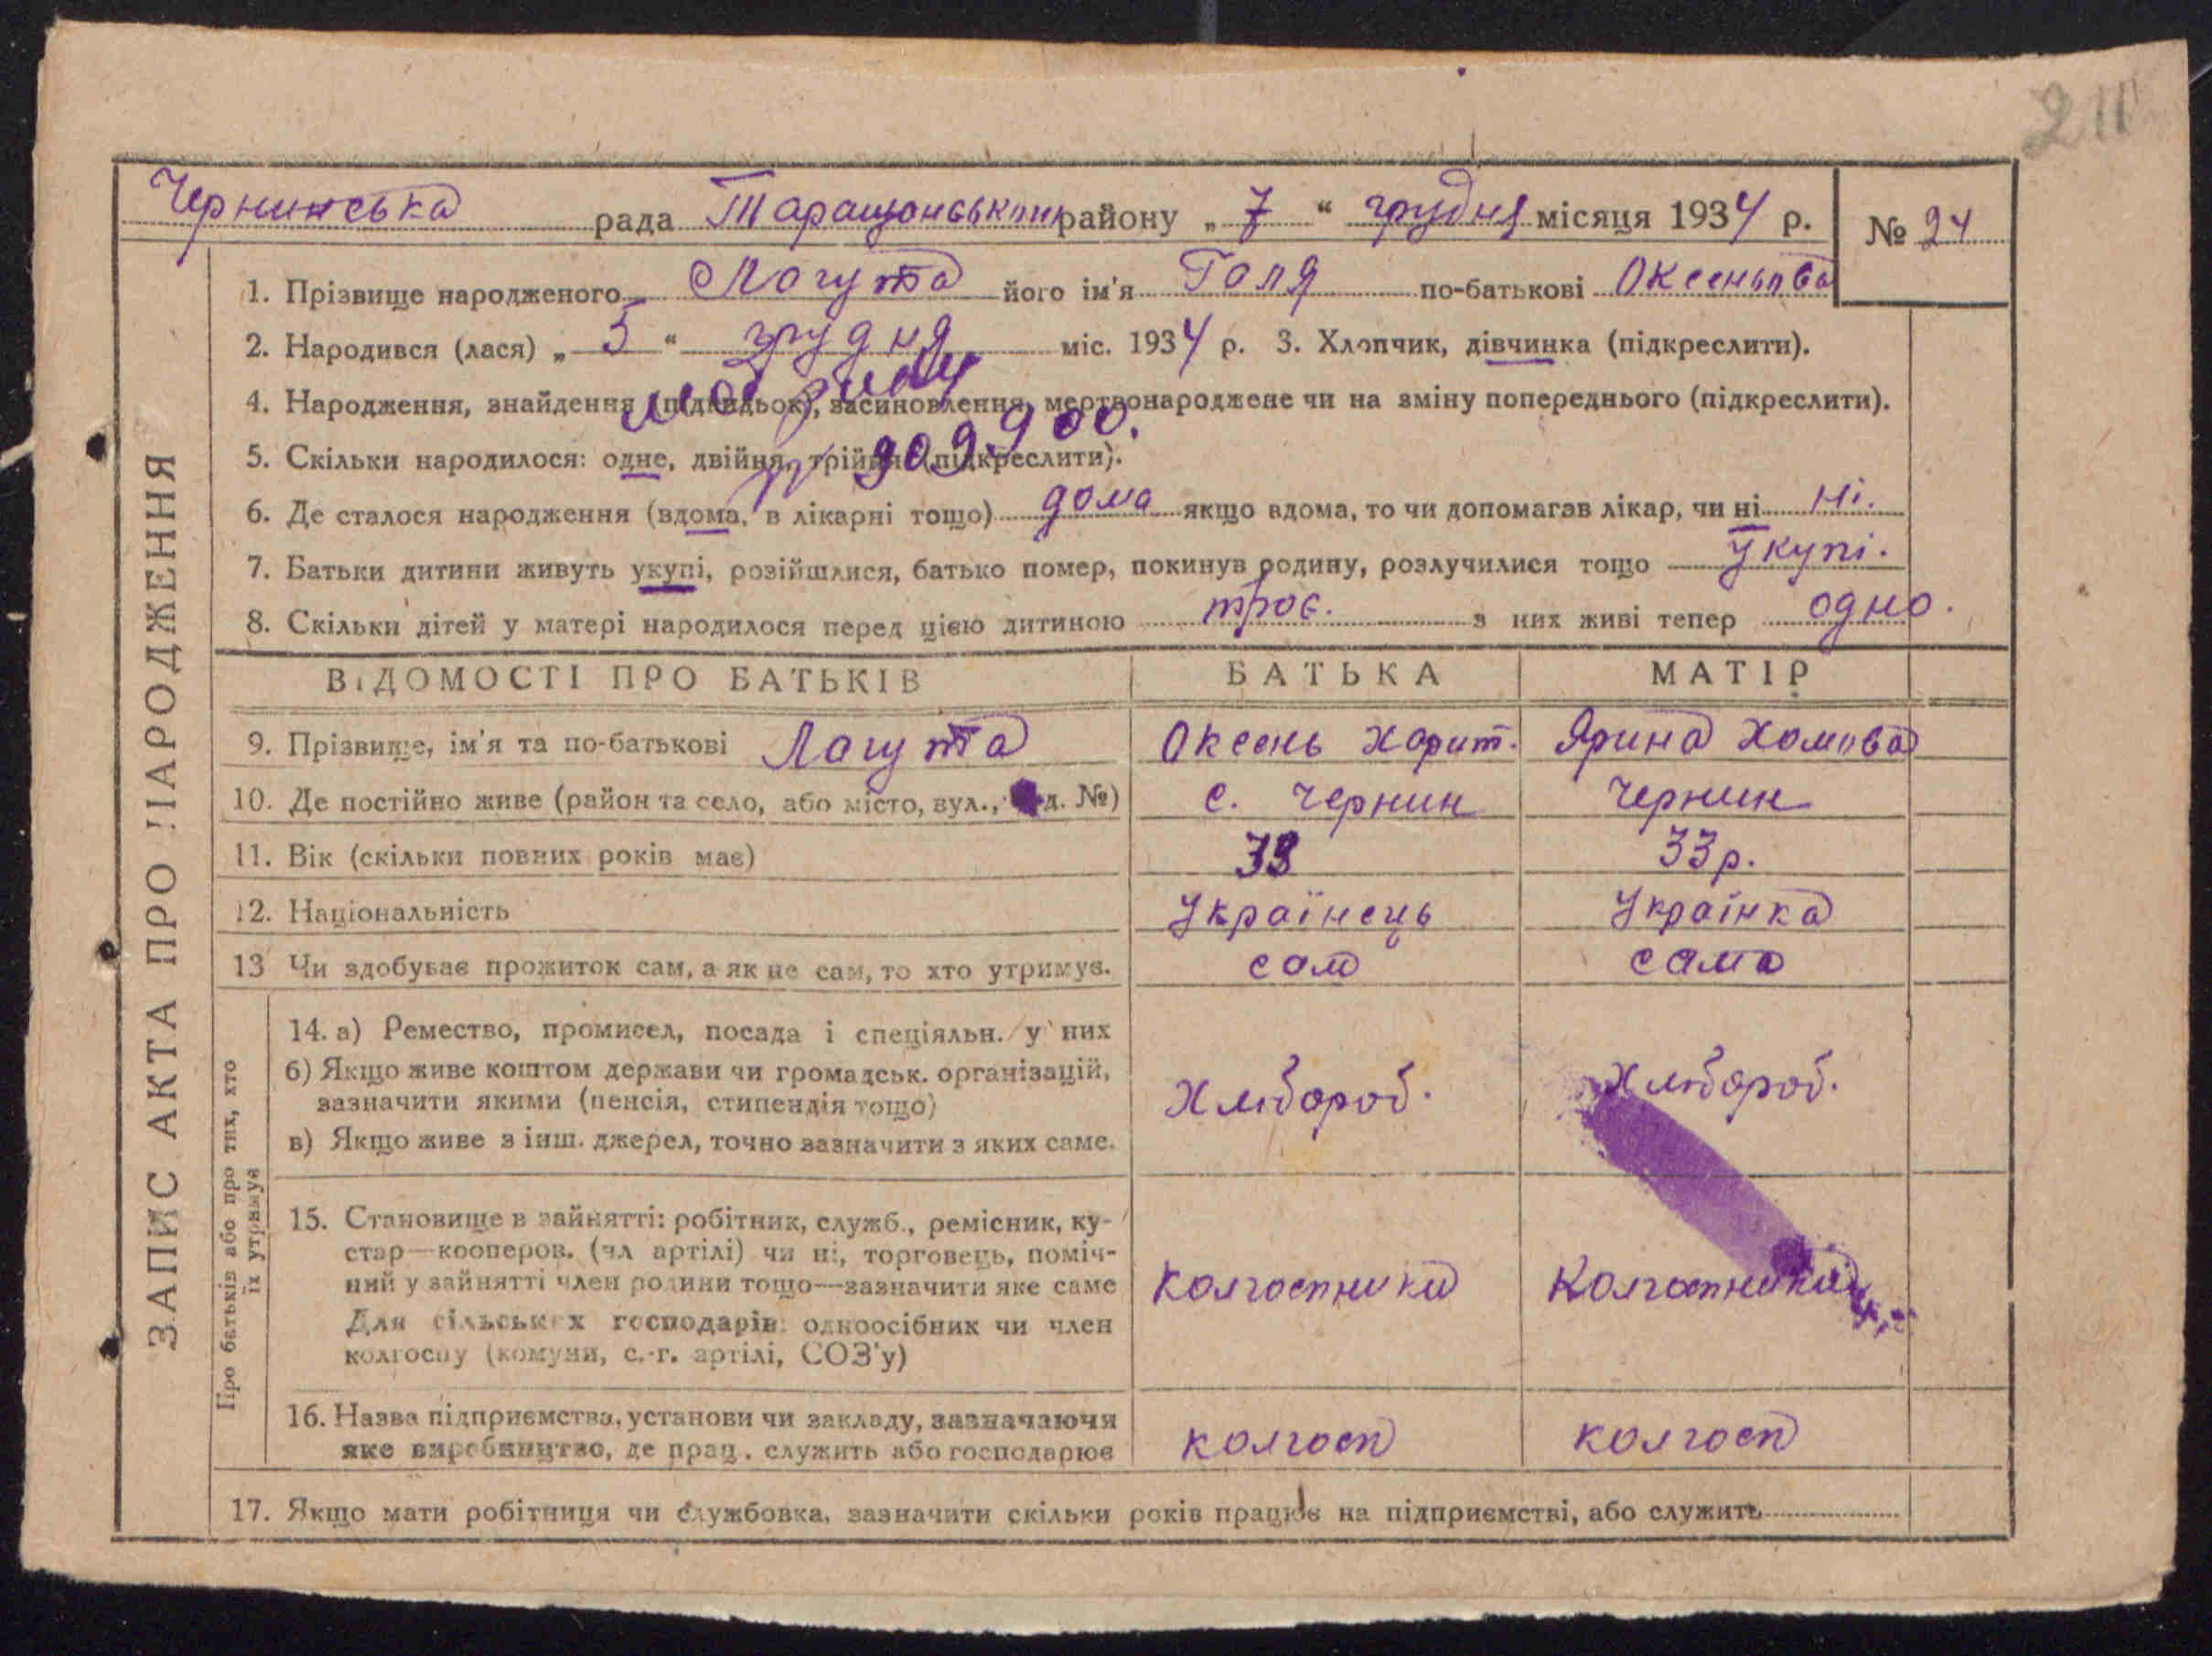 211
Чернинська рада Таращонськ району „ 7 “ грудня місяця 1934 р. № 24
ЗАПИС АКТА ПРО НАРОДЖЕННЯ
1. Прізвище народженого Лагута його ім'я Галя по-батькові Оксеньова
2. Народився (лася) „ 5 “ грудня міс. 1934 р. 3. Хлопчик, дівчинка (підкреслити).
4. Народження, знайдення (підкидьок), засиновлення, мертвонароджене чи на зміну попереднього (підкреслити).
5. Скільки народилося: одне, двійня, трійня (підкреслити).
6. Де сталося народження (вдома, в лікарні тощо) дома якщо вдома, то чи допомагав лікар, чи ні ні.
7. Батьки дитини живуть укупі, розійшлися, батько помер, покинув родину, розлучилися тощо укупі.
8. Скільки дітей у матері народилося перед цією дитиною троє. з них живі тепер одно.
ВІДОМОСТІ ПРО БАТЬКІВ БАТЬКА МАТІР
9. Прізвище, ім'я та по-батькові Лагута Оксень Харит. Ярина Хомова
10. Де постійно живе (район та село, або місто, вул., буд. №) с. Чернин Чернин
11. Вік (скільки повних років має) 33р.
12. Національність Українець Українка
13 Чи здобуває прожиток сам, а як не сам, то хто утримує. сам сама
Про батьків або про тих, хто їх утримує
14. а) Ремество, промисел, посада і спеціяльн. у них
б) Якщо живе коштом держави чи громадськ. організацій,
зазначити якими (пенсія, стипендія тощо) Хлібороб. Хлібороб.
в) Якщо живе з інш. джерел, точно зазначити з яких саме.
15. Становище в зайнятті: робітник, служб., ремісник, ку-
стар—кооперов. (чл артілі) чи ні, торговець, поміч-
ний у зайнятті член родини тощо—зазначити яке саме колгоспники Колгоспники
Для сільських господарів: одноосібник чи член
колгоспу (комуни, с.-г. артілі, СОЗ'у)
16. Назва підприємства, установи чи закладу, зазначаючи
яке виробництво, де прац. служить або господарює колгосп колгосп
17. Якщо мати робітниця чи службовка, зазначити скільки років працює на підприємстві, або служить